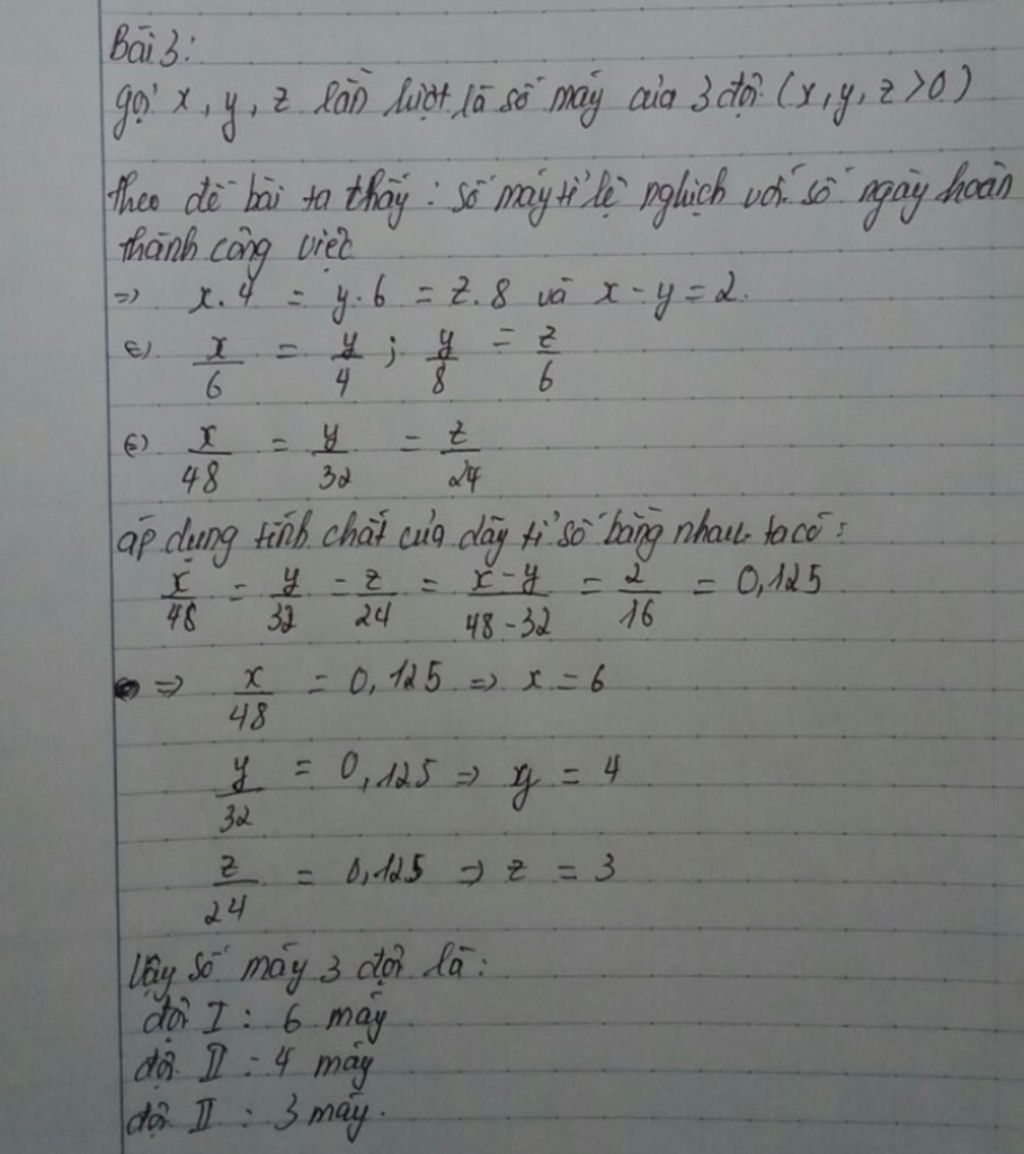 Bài 3:
gọi x, y, z lần lượt là số máy của 3 đội (x, y, z > 0)
theo đề bài ta thấy: số máy tỉ lệ nghịch với số ngày hoàn
thành công việc
=> x.4 = y.6 = z.8 và x - y = 2.
<=> x/6 = y/4 ; y/8 = z/6
<=> x/48 = y/32 = z/24
áp dụng tính chất của dãy tỉ số bằng nhau ta có:
x/48 = y/32 = z/24 = x-y/48-32 = 2/16 = 0,125
=> x/48 = 0,125 => x = 6
y/32 = 0,125 => y = 4
z/24 = 0,125 => z = 3
Vậy số máy 3 đội là:
đội I : 6 máy
đội II : 4 máy
đội II : 3 máy.